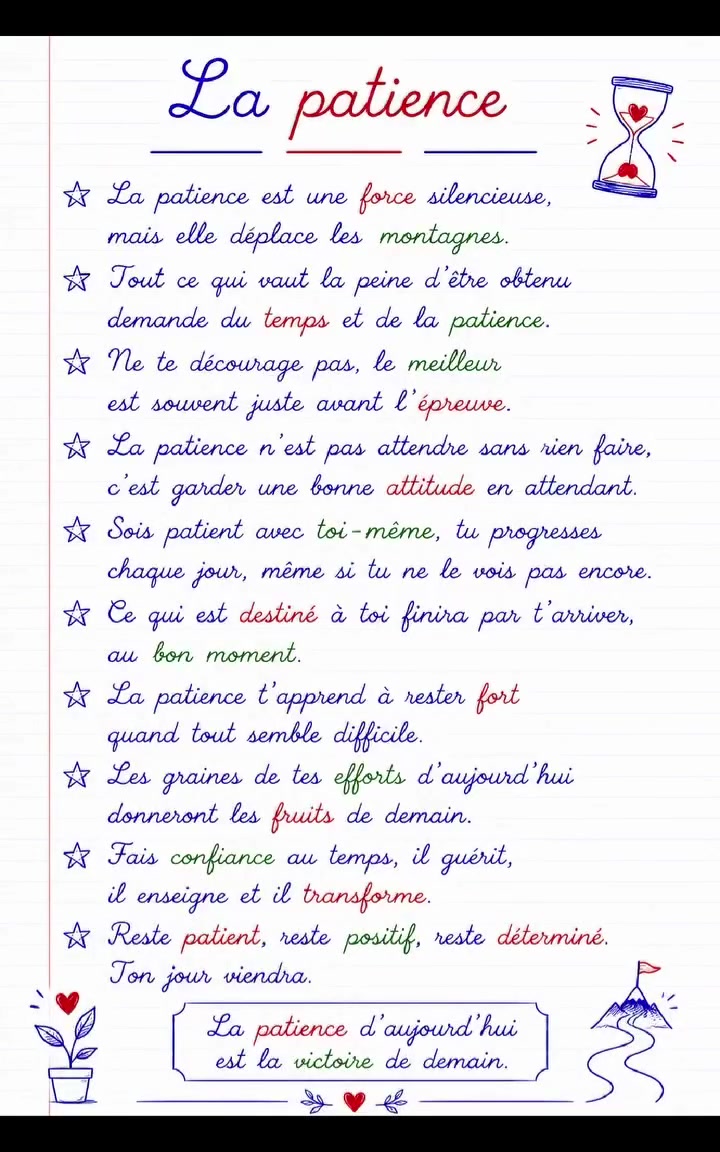 La patience
La patience est une force silencieuse,
mais elle déplace les montagnes.
Tout ce qui vaut la peine d'être obtenu
demande du temps et de la patience.
Ne te décourage pas, le meilleur
est souvent juste avant l'épreuve.
La patience n'est pas attendre sans rien faire,
c'est garder une bonne attitude en attendant.
Sois patient avec toi-même, tu progresses
chaque jour, même si tu ne le vois pas encore.
Ce qui est destiné à toi finira par t'arriver,
au bon moment.
La patience t'apprend à rester fort
quand tout semble difficile.
Les graines de tes efforts d'aujourd'hui
donneront les fruits de demain.
Fais confiance au temps, il guérit,
il enseigne et il transforme.
Reste patient, reste positif, reste déterminé.
Ton jour viendra.
La patience d'aujourd'hui
est la victoire de demain.